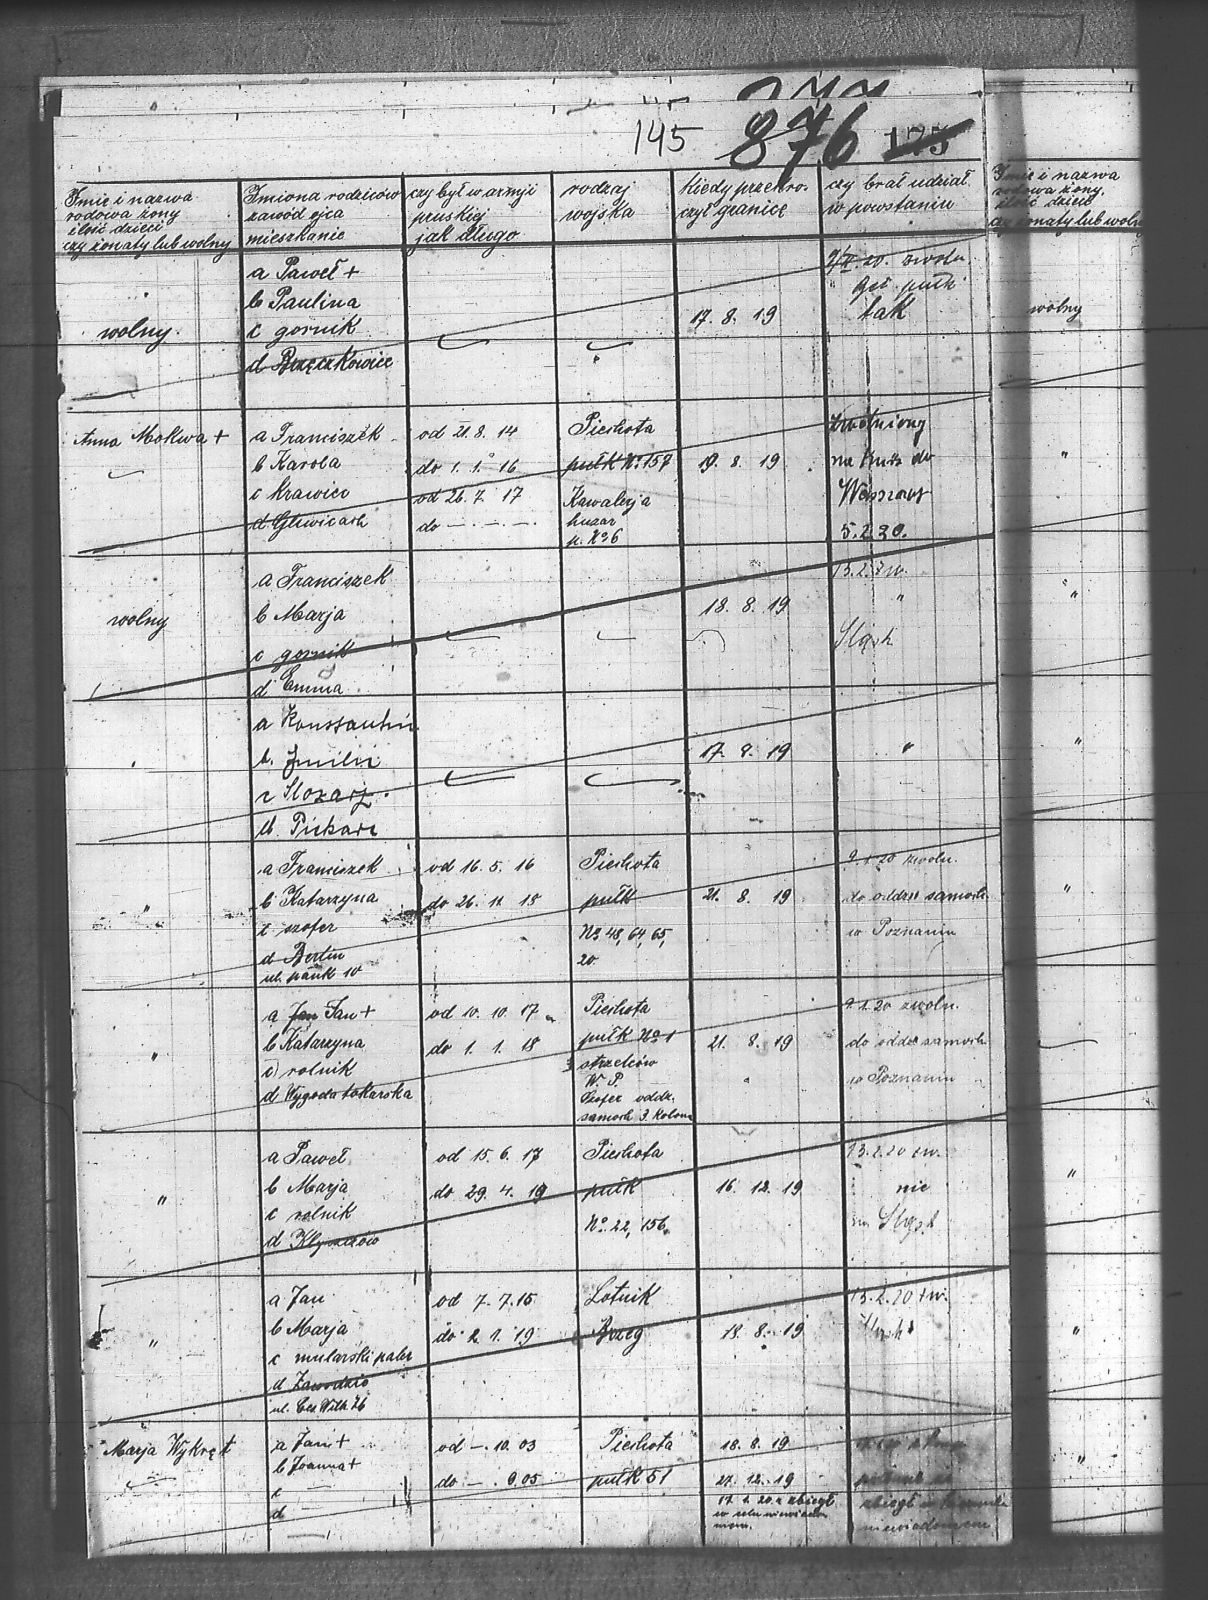 145 876 175
Imię i nazwa
rodowa żony
ilość dzieci
czy żonaty lub wolny
Imiona rodziców
zawód ojca
mieszkanie
czy był w armji
pruskiej
jak długo
rodzaj
wojska
kiedy przekro-
czył granicę
czy brał udział
w powstaniu
Imię i nazwa
rodowa żony
ilość dzieci
czy żonaty lub wolny
wolny
a Paweł +
b Paulina
c gornik
d Brzęczkowice
17. 8. 19
zwoln.
tak
wolny
Anna Mokwa +
a Franciszek
b Karola
c krawiec
d Gliwicach
od 21. 8. 14
do 1. 1. 16
od 26. 7. 17
do — . — . — .
Piechota
pułk No 157
Kawalerja
huzar
p. No 6
19. 8. 19
na kurs do
Warszawy
5. 2. 20.
"
wolny
a Franciszek
b Marja
c gornik
d Emma
18. 8. 19
13. 2. zw.
"
Śląsk
"
a Konstantin
b. Emilii
c Slozarz
d Piekarz
17. 8. 19
"
"
"
a Franciszek
b Katarzyna
c szofer
d Berlin
ul. pank 10
od 16. 5. 16
do 26. 11 18
Piechota
pułk
No 48, 64, 65,
20
21. 8. 19
9. 1. 20 zwoln.
do oddzi samoch.
w Poznaniu
"
"
a Jan Jan +
b Katarzyna
c) rolnik
d Wygoda tokarska
od 10. 10. 17
do 1. 1. 18
Piechota
pułk No 1
strzelców
W. P.
Szofer oddz.
samoch 3. Kolona
21. 8. 19
9. 1. 20 zwoln.
do oddz samoch
w Poznaniu
"
a Paweł
b Marja
c rolnik
d
od 15. 6. 17
do 29. 4. 19
Piechota
pułk
No 22, 156.
16. 12. 19
13. 2. 20 zw.
nie
na Śląsk
"
"
a Jan
b Marja
c mularski palier
d Zawodzie
ul. Ces. Wilh 76
od 7. 7. 15
do 2. 1. 19
Lotnik
Brzeg
18. 8. 19
13. 2. 20 zw.
"
Marja Wykręt
a Jan +
b Joanna +
c —
d —
od — . 10. 03
do — . 9. 05
Piechota
pułk 51
18. 8. 19
27. 12. 19
17. 1. 20. r zbiegł
w celu niewiadomem.
zbiegł w kierunku
niewiadomem
"